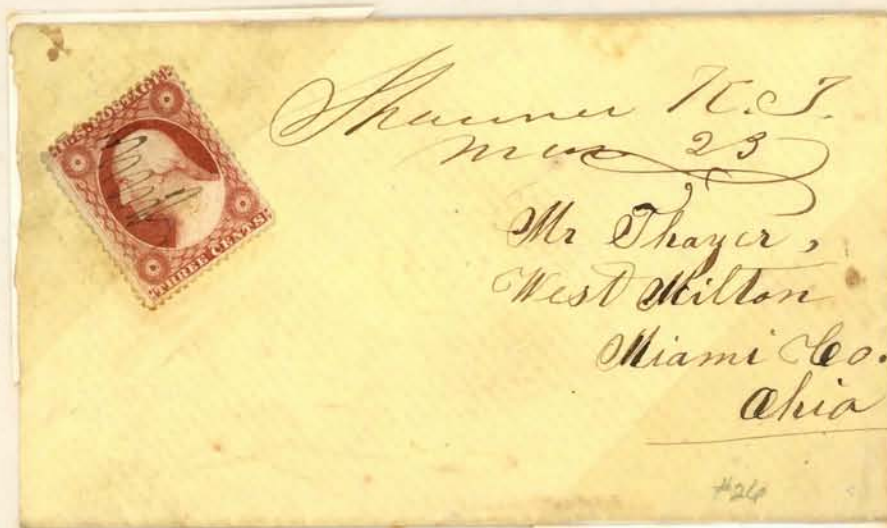 U.S. POSTAGE
THREE CENTS
Shawnee K.T.
Mar 23
Mr Thayer,
West Milton
Miami Co.
Ohio
#26